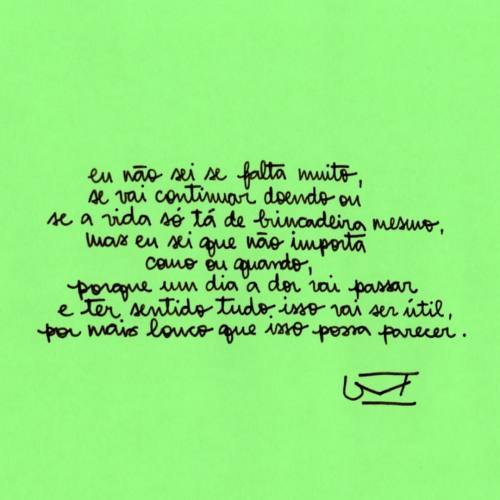 eu não sei se falta muito,
se vai continuar doendo ou
se a vida só tá de brincadeira mesmo,
mas eu sei que não importa
como ou quando,
porque um dia a dor vai passar
e ter sentido tudo isso vai ser útil,
por mais louco que isso possa parecer.